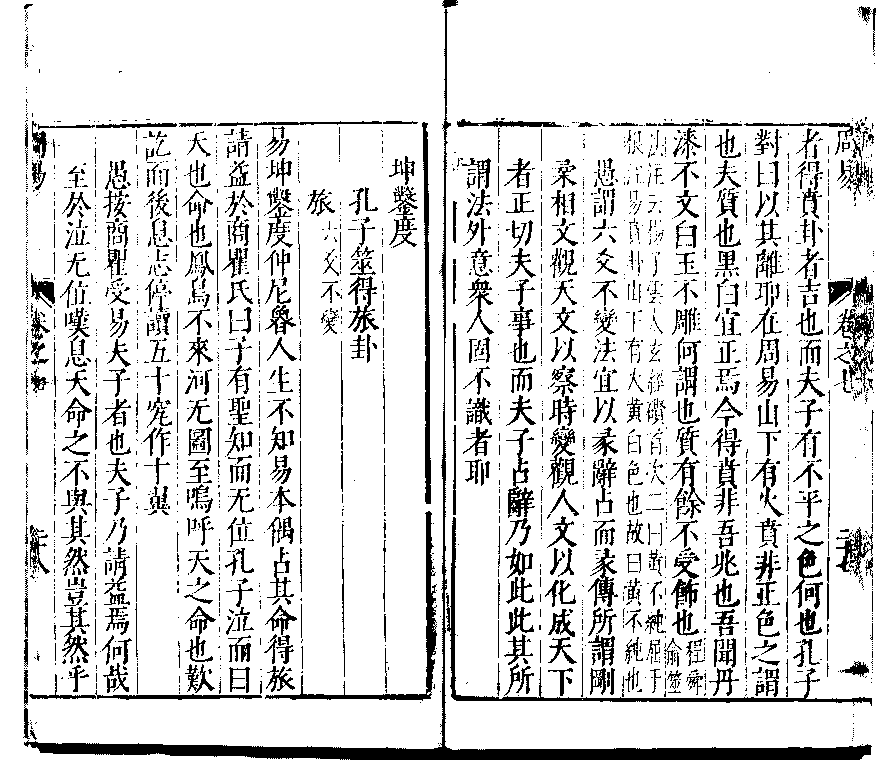 周易 卷之 二十
者得賁卦者吉也而夫子有不平之色何也孔子
對曰以其離耶在周易山下有火賁非正色之謂
也夫質也黑白宜正焉今得賁非吾兆也吾聞丹
漆不文白玉不雕何謂也質有餘不受飾也 程舜俞筮
法注云揚子雲太玄經礥首次二曰黃不純屈于
根 易賁卦山下有火黃白色也故曰黃不純也
愚謂六爻不變法宜以彖辭占而彖傳所謂剛
柔相文觀天文以察時變觀人文以化成天下
者正切夫子事也而夫子占辭乃如此此其所
謂法外意衆人固不識者耶
坤鑿度
孔子筮得旅卦
旅 六爻不變
易坤鑿度仲尼魯人生不知易本偶占其命得旅
請益於商瞿氏曰子有聖知而无位孔子泣而曰
天也命也鳳鳥不來河无圖至嗚呼天之命也歎
訖而後息志停讀五十究作十翼
愚按商瞿受易夫子者也夫子乃請益焉何哉
至於泣无位嘆息天命之不與其然豈其然乎
周易 卷之 二十八